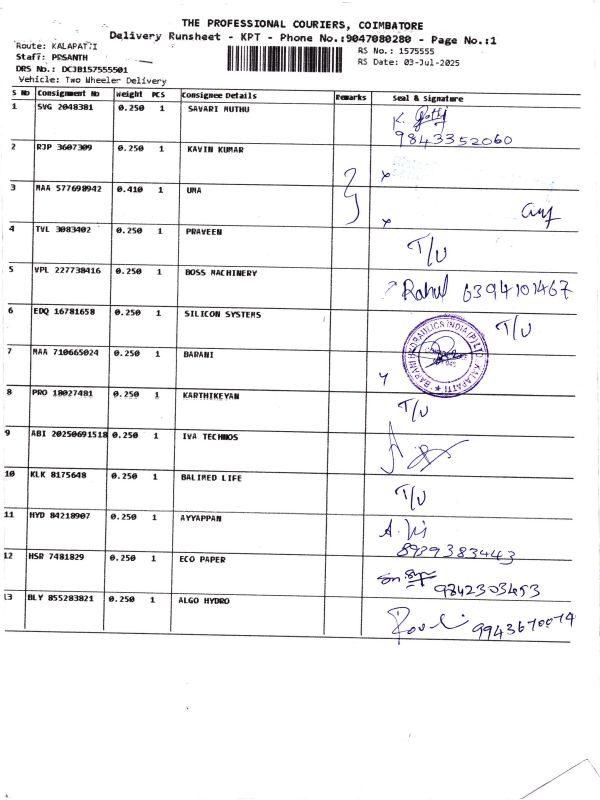 THE PROFESSIONAL COURIERS, COIMBATORE
Delivery Runsheet - KPT - Phone No.:9047080280 - Page No.:1
Route: KALAPATTI
RS No.: 1575555
Staff: PRSANTH
RS Date: 03-Jul-2025
DRS No.: DCJB157555501
Vehicle: Two Wheeler Delivery
S No Consignment No Weight PCS Consignee Details Remarks Seal & Signature
1 SVG 2048381 0.250 1 SAVARI MUTHU
9843352060
2 RJP 3607309 0.250 1 KAVIN KUMAR
3 MAA 577698942 0.410 1 UMA
4 TVL 3083402 0.250 1 PRAVEEN T/U
5 VPL 227738416 0.250 1 BOSS MACHINERY Rahul 6394101467
6 EDQ 16781658 0.250 1 SILICON SYSTEMS T/U
BARANI HYDRAULICS INDIA (P) LTD. KALAPATTI
7 MAA 710665024 0.250 1 BARANI
8 PRO 18027481 0.250 1 KARTHIKEYAN T/U
9 ABI 20250691518 0.250 1 IVA TECHNOS
10 KLK 8175648 0.250 1 BALIMED LIFE T/U
11 HYD 84218907 0.250 1 AYYAPPAN
8939383443
12 HSR 7481829 0.250 1 ECO PAPER
9842303453
13 BLY 855283821 0.250 1 ALGO HYDRO
9943670074